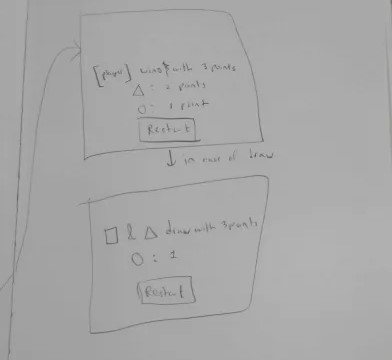 [player] wins with 3 points
△ : 2 points
○ : 1 point
Restart
↓ in case of draw
□ & △ draw with 3 points
○ : 1
Restart